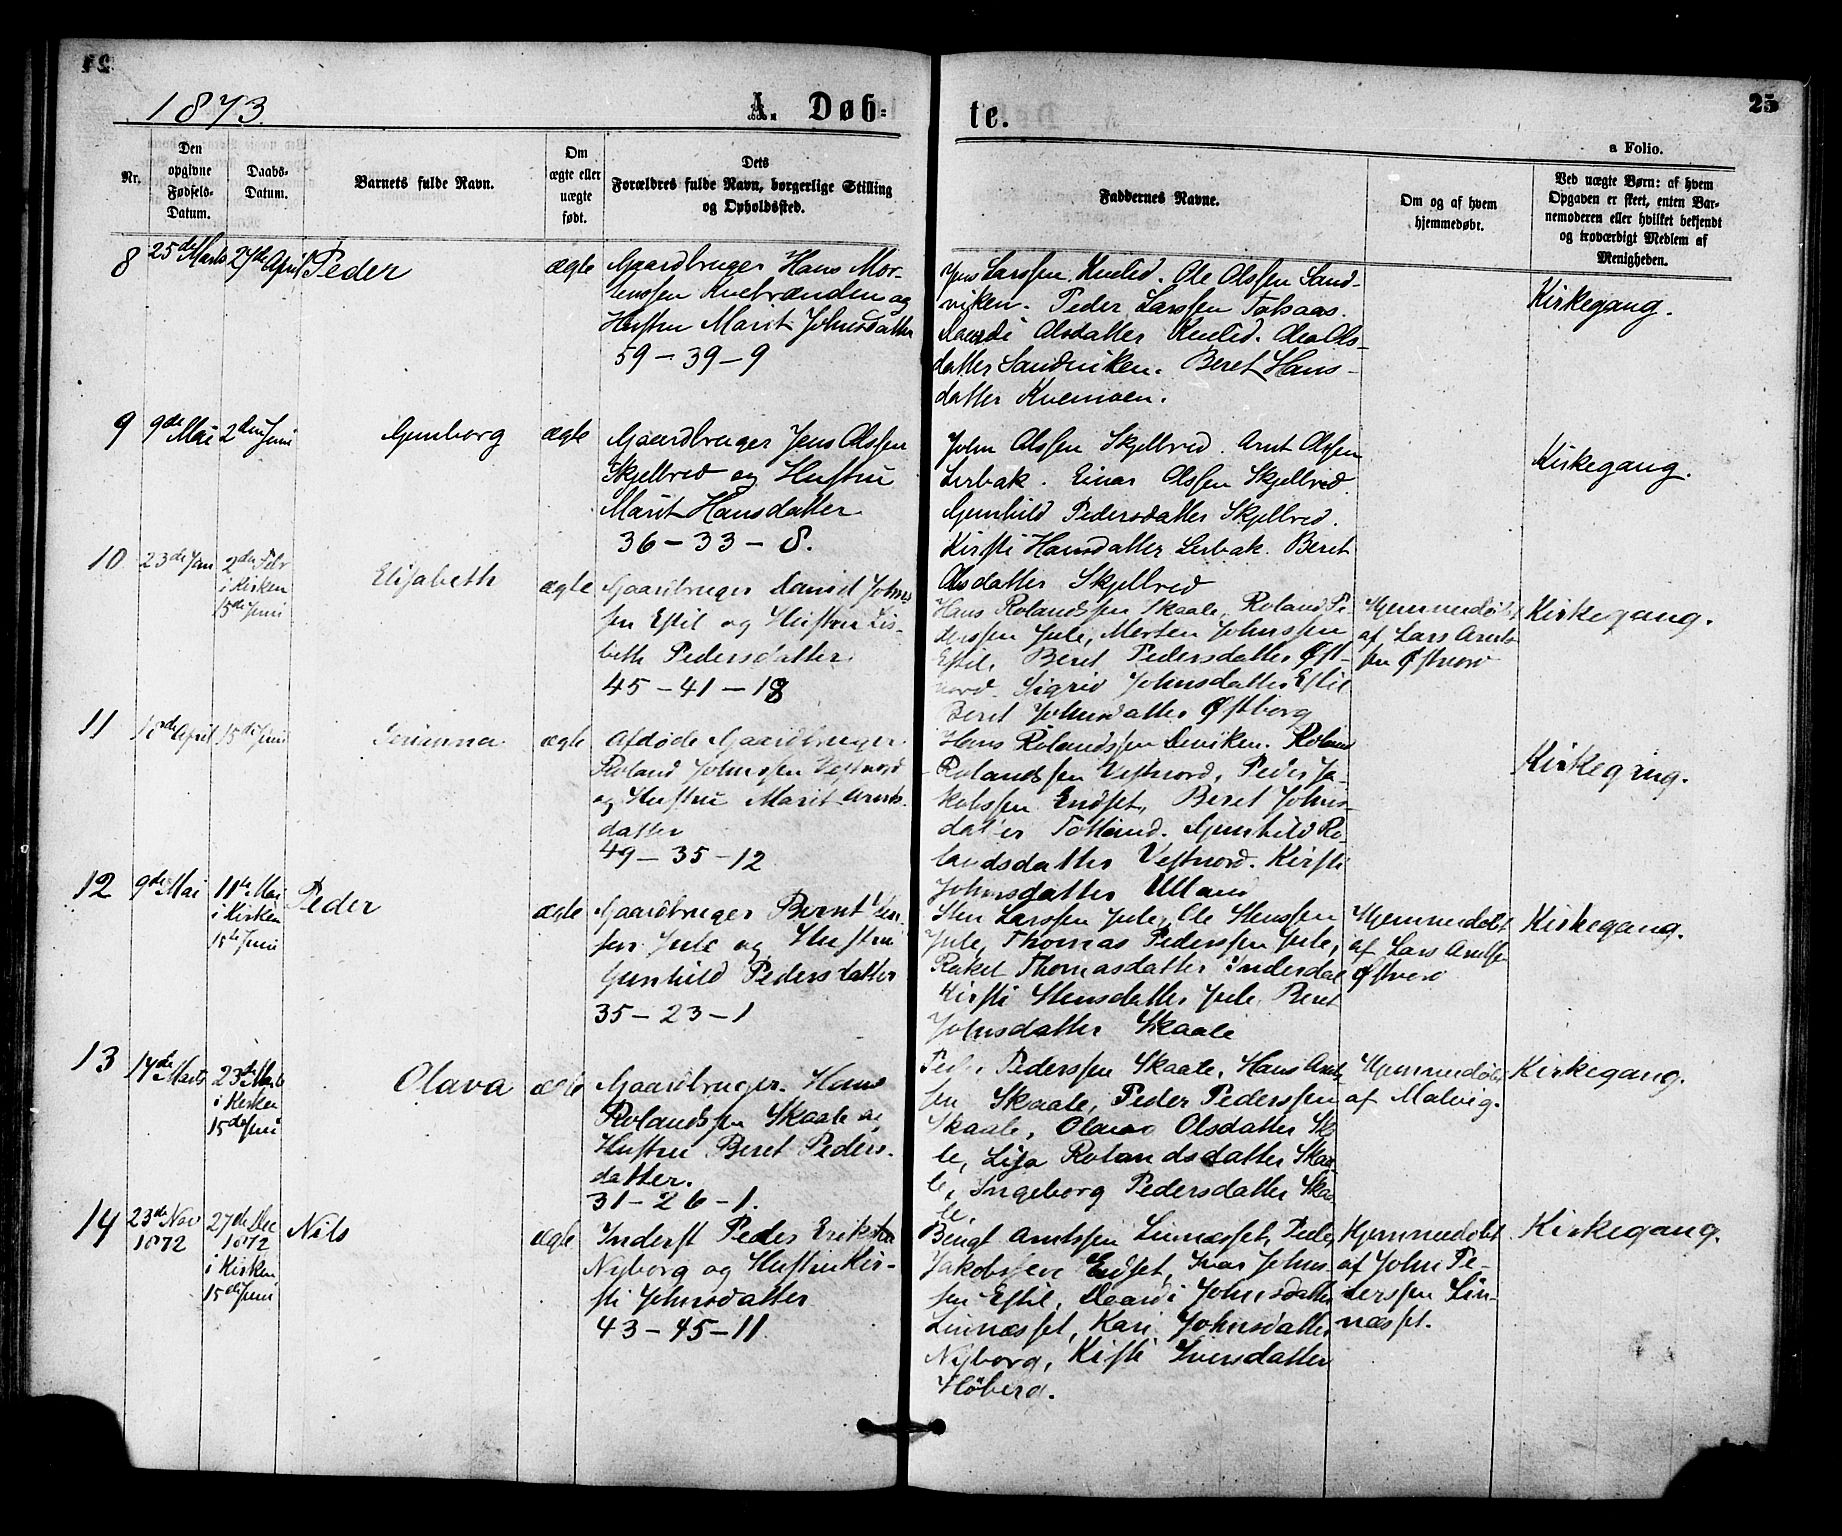 1873.
A. Døb-
te.
25
a Folio.
Nr.
Den opgivne Fødsels-Datum.
Daabs-Datum.
Barnets fulde Navn.
Om ægte eller uægte født.
Dets Forældres fulde Navn, borgerlige Stilling og Opholdssted.
Faddernes Navne.
Om og af hvem hjemmedøbt.
Ved uægte Børn: af hvem Opgaven er skeet, enten Barnemoderen eller hvilket bekjendt og troværdigt Medlem af Menigheden.
8
25de Marts
27de April
Peder
ægte
Gaardbruger Hans Mor-
tenssen Kvebrænden og
Hustru Marit Johnsdatter
59-39-9
Jens Larssen Kvelid. Ole Olssen Sand-
viken. Peder Larssen Tolsaas.
Olsdatter Kvelid. Olea Ols-
datter Sandviken. Beret Hans-
datter Kvemoen.
Kirkegang.
9
9de Mai
2den Juni
Gunborg
ægte
Gaardbruger Jens Olssen
Skjelbred og Hustru
Marit Hansdatter
36-33-8.
John Olssen Skjelbred. Arnt Olssen
Lerbak. Einar Olssen Skjelbred.
Gunhild Pedersdatter Skjelbred.
Kirsti Hansdatter Lerbak. Beret
Olsdatter Skjelbred
Kirkegang.
10
23de Jan
2den Febr
i Kirken
15de Juni
Elisabeth
ægte
Gaardbruger Daniel Johns
sen Estil og Hustru Lis-
beth Pedersdatter
45-41-18
Hans Rolandssen Skaale, Roland Pe-
derssen Jule, Morten Johnssen
Estil, Beret Pedersdatter Øst-
nord. Sigrid Johnsdatter Estil
Beret Johnsdatter Østborg
Hjemmedøbt
af Lars Arnts-
sen Østnord
Kirkegang.
11
18de April
15de Juni
ægte
Afdøde Gaardbruger
Roland Johnssen Vestnord
og Hustru Marit Arnts-
datter
49-35-12
Hans Rolandssen Deviken. Roland
Rolandssen Vestnord, Peder Ja-
kobssen Endset, Beret Johns-
datter Totland. Gunhild Ro-
landsdatter Vestnord. Kirsti
Johnsdatter Ulland
Kirkegang.
12
9de Mai
11te Mai
i Kirken
15de Juni
Peder
ægte
Gaardbruger Bernt
sen Jule og Hustru
Gunhild Pedersdatter
35-23-1
Sten Larssen Jule, Ole Stenssen
Jule, Thomas Pederssen Jule,
Rakel Thomasdatter Inderdal
Kirsti Stensdatter Jule, Beret
Johnsdatter Skaale
Hjemmedøbt
af Lars Arntsen
Kirkegang.
13
14de Marts
23de Marts
i Kirken
15de Juni
Olava
ægte
Gaardbruger Hans
Rolandssen Skaale og
Hustru Beret Peders-
datter.
31-26-1.
Peder Pederssen Skaale, Hans Arnt-
sen Skaale, Peder Pederssen
Skaale, Olava Olsdatter Ska
le, Lisa Rolandsdatter Skaa-
le, Ingeborg Pedersdatter Skaa
le.
Hjemmedøbt
af Malvig.
Kirkegang.
14
23de Nov
1872
27de Dec
1872
i Kirken
15de Juni
Nils
ægte
Inderst Peder
Nyborg og Hustru Kir-
sti Johnsdatter
43-45-11.
Bengt Arntssen Linnæsset, Peder
Jakobssen Endset, Ivar Johns
sen Estil, Johnsdatter
Linnæsset, Kari Johnsdatter
Nyborg, Kisti Iversdatter
Høberg.
Hjemmedøbt
af John Pe-
derssen Lin-
næsset.
Kirkegang.